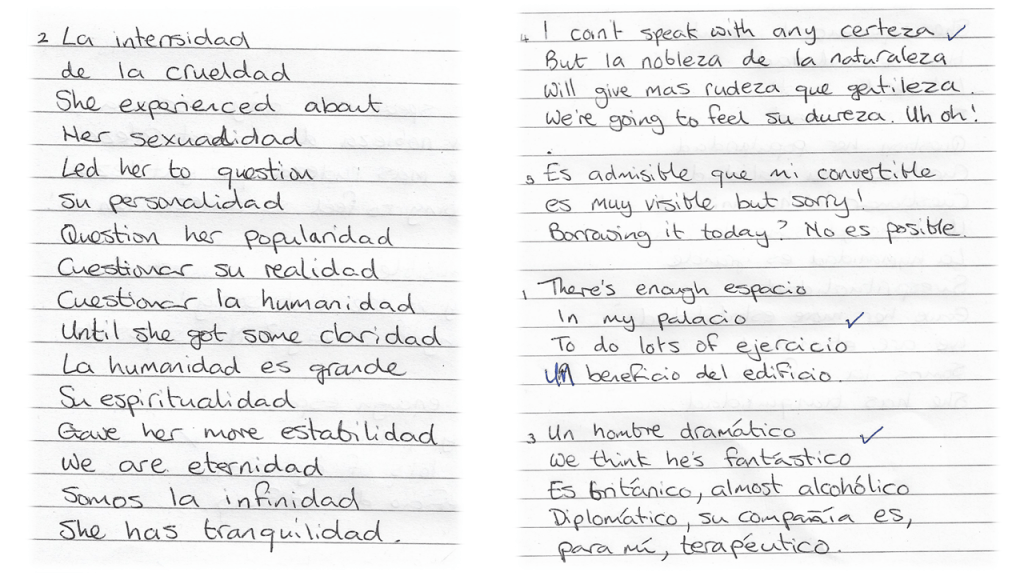 2 La intensidad
de la crueldad
She experienced about
Her sexualidad
Led her to question
Su personalidad
Question her popularidad
Cuestionar su realidad
Cuestionar la humanidad
Until she got some claridad
La humanidad es grande
Su espiritualidad
Gave her more estabilidad
We are eternidad
Somos la infinidad
She has tranquilidad.
4 I can't speak with any certeza ✓
But la nobleza de la naturaleza
Will give mas rudeza que gentileza.
We're going to feel su dureza. Uh oh!
5 Es admisible que mi convertible
es muy visible but sorry!
Borrowing it today? No es posible.
1 There's enough espacio
In my palacio ✓
To do lots of ejercicio
Un beneficio del edificio.
3 Un hombre dramático ✓
We think he's fantástico
Es británico, almost alcohólico
Diplomático, su compañía es,
para mí, terapéutico.